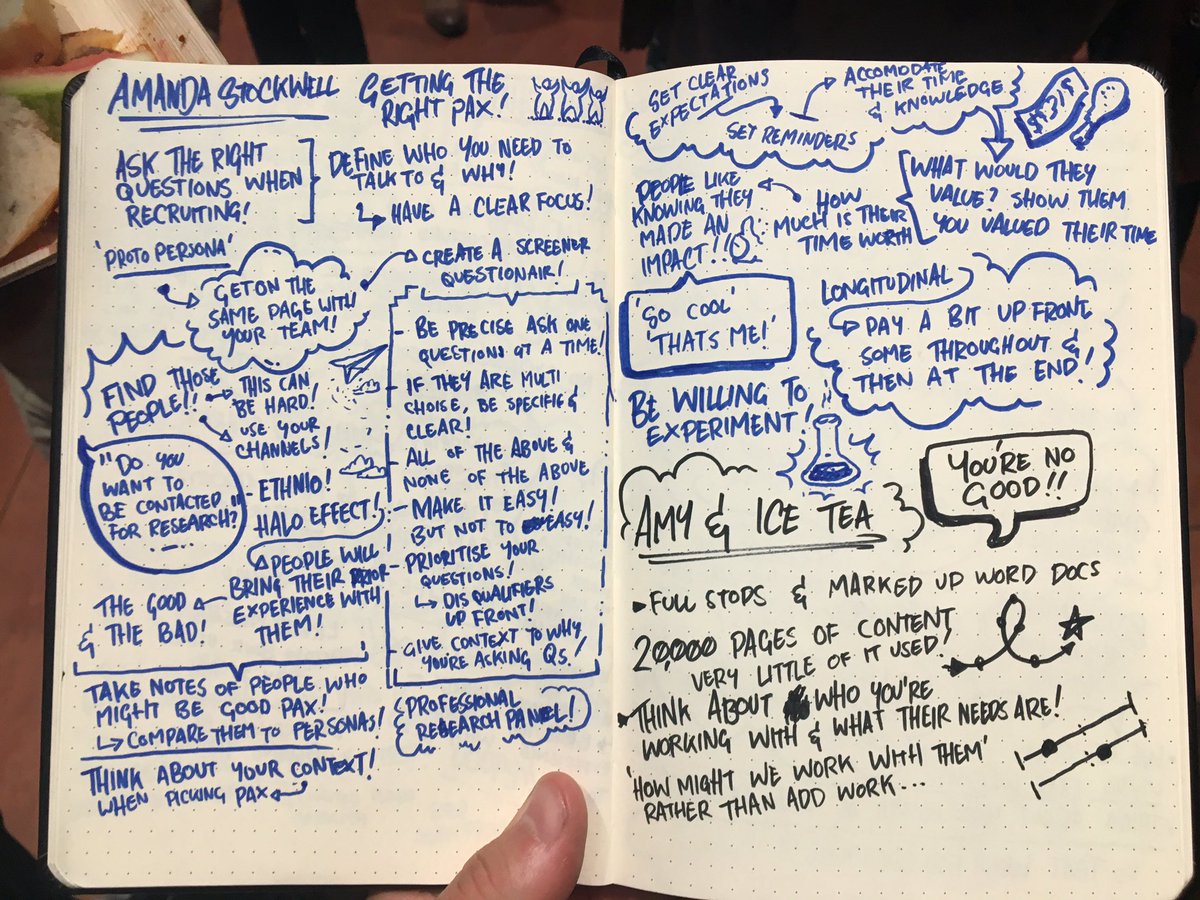 AMANDA STOCKWELL
GETTING THE
RIGHT PAX!
ASK THE RIGHT
QUESTIONS WHEN
RECRUITING!
DEFINE WHO YOU NEED TO
TALK TO & WHY!
HAVE A CLEAR FOCUS!
'PROTO PERSONA'
GET ON THE
SAME PAGE WITH
YOUR TEAM!
CREATE A SCREENER
QUESTIONAIR!
- BE PRECISE ASK ONE
QUESTIONS AT A TIME!
- IF THEY ARE MULTI
CHOISE, BE SPECIFIC &
CLEAR!
- ALL OF THE ABOVE &
NONE OF THE ABOVE
- MAKE IT EASY!
BUT NOT TO EASY!
- PRIORITISE YOUR
QUESTIONS!
DISQUALIFIERS
UP FRONT!
- GIVE CONTEXT TO WHY
YOU'RE ASKING QS!
FIND THOSE
PEOPLE!!
THIS CAN
BE HARD!
USE YOUR
CHANNELS!
"DO YOU
WANT TO
BE CONTACTED
FOR RESEARCH?"
- ETHNIO!
HALO EFFECT!
PEOPLE WILL
BRING THEIR PRIOR
EXPERIENCE WITH
THEM!
THE GOOD
& THE BAD!
TAKE NOTES OF PEOPLE WHO
MIGHT BE GOOD PAX!
COMPARE THEM TO PERSONAS!
THINK ABOUT YOUR CONTEXT!
WHEN PICKING PAX
PROFESSIONAL
RESEARCH PANEL!
SET CLEAR
EXPECTATIONS
SET REMINDERS
ACCOMODATE
THEIR TIME
& KNOWLEDGE
WHAT WOULD THEY
VALUE? SHOW THEM
YOU VALUED THEIR TIME
HOW
MUCH IS THEIR
TIME WORTH
PEOPLE LIKE
KNOWING THEY
MADE AN
IMPACT!!
'SO COOL'
'THATS ME!'
LONGITUDINAL
PAY A BIT UP FRONT
SOME THROUGHOUT &
THEN AT THE END!
BE WILLING TO
EXPERIMENT!
AMY & ICE TEA
YOU'RE NO
GOOD!!
FULL STOPS & MARKED UP WORD DOCS
20,000 PAGES OF CONTENT
VERY LITTLE OF IT USED!
THINK ABOUT WHO YOU'RE
WORKING WITH & WHAT THEIR NEEDS ARE!
'HOW MIGHT WE WORK WITH THEM'
RATHER THAN ADD WORK...